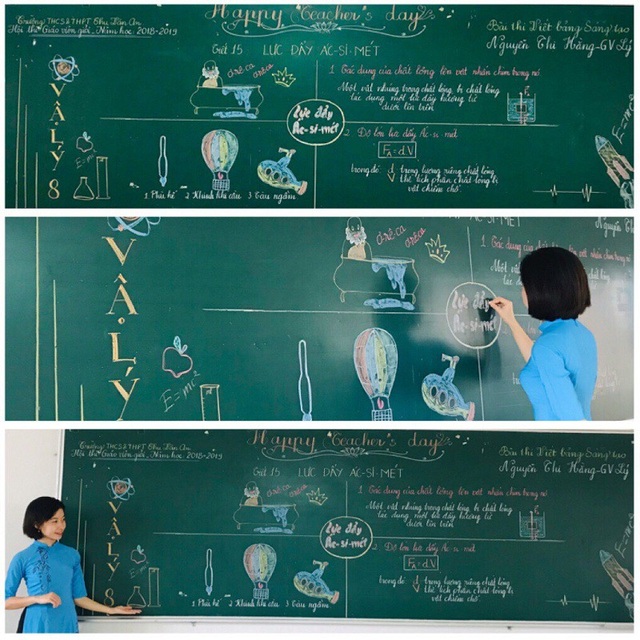 Happy Teacher's day
Trường THCS&THPT Chu Văn An
Hội thi Giáo viên giỏi, Năm học 2018-2019
Bài thi Viết bảng Sáng tạo
Nguyễn Thị Hằng-GV Lý
Tiết 15 LỰC ĐẨY AC-SI-MÉT
VẬT LÝ 8
ơrêca
ơrêca
1 Tác dụng của chất lỏng lên vật nhúng chìm trong nó
Một vật nhúng trong chất lỏng bị chất lỏng
tác dụng một lực đẩy hướng từ
dưới lên trên
Lực đẩy
Ac-si-mét
2 Độ lớn lực đẩy Ac-si-mét
FA=d.V
trong đó: d trọng lượng riêng chất lỏng
V thể tích phần chất lỏng bị
vật chiếm chỗ.
1 Phù kế 2 Khinh khí cầu 3 Tàu ngầm
E=mc²
VẬT LÝ
ơrêca
ơrêca
E=mc²
Lực đẩy
Ac-si-mét
Happy Teacher's day
Trường THCS&THPT Chu Văn An
Hội thi Giáo viên giỏi, Năm học 2018-2019
Bài thi Viết bảng Sáng tạo
Nguyễn Thị Hằng-GV Lý
Tiết 15 LỰC ĐẨY AC-SI-MÉT
VẬT LÝ 8
1 Tác dụng của chất lỏng lên vật nhúng chìm trong nó
Một vật nhúng trong chất lỏng bị chất lỏng
tác dụng một lực đẩy hướng từ
dưới lên trên
Lực đẩy
Ac-si-mét
2 Độ lớn lực đẩy Ac-si-mét
FA=d.V
trong đó: d trọng lượng riêng chất lỏng
V thể tích phần chất lỏng bị
vật chiếm chỗ.
1 Phù kế 2 Khinh khí cầu 3 Tàu ngầm